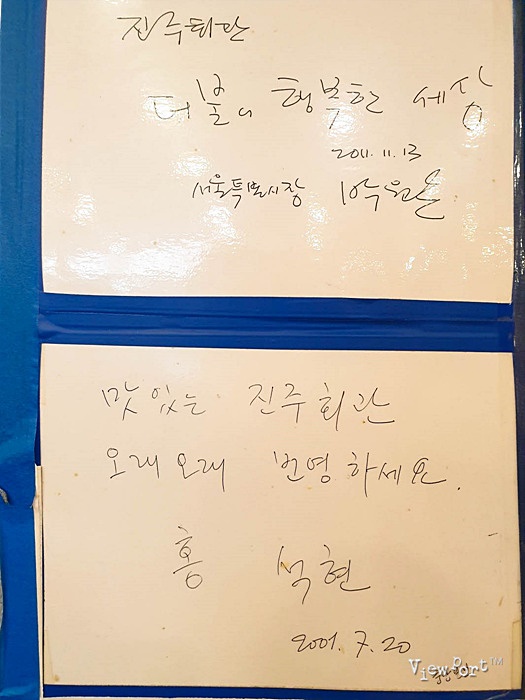 진주회관
더불어 행복한 세상
2011. 11. 13
서울특별시장 박원순
맛있는 진주회관
오래오래 번영하세요.
홍 석현
2001. 7. 20
ViewPort™